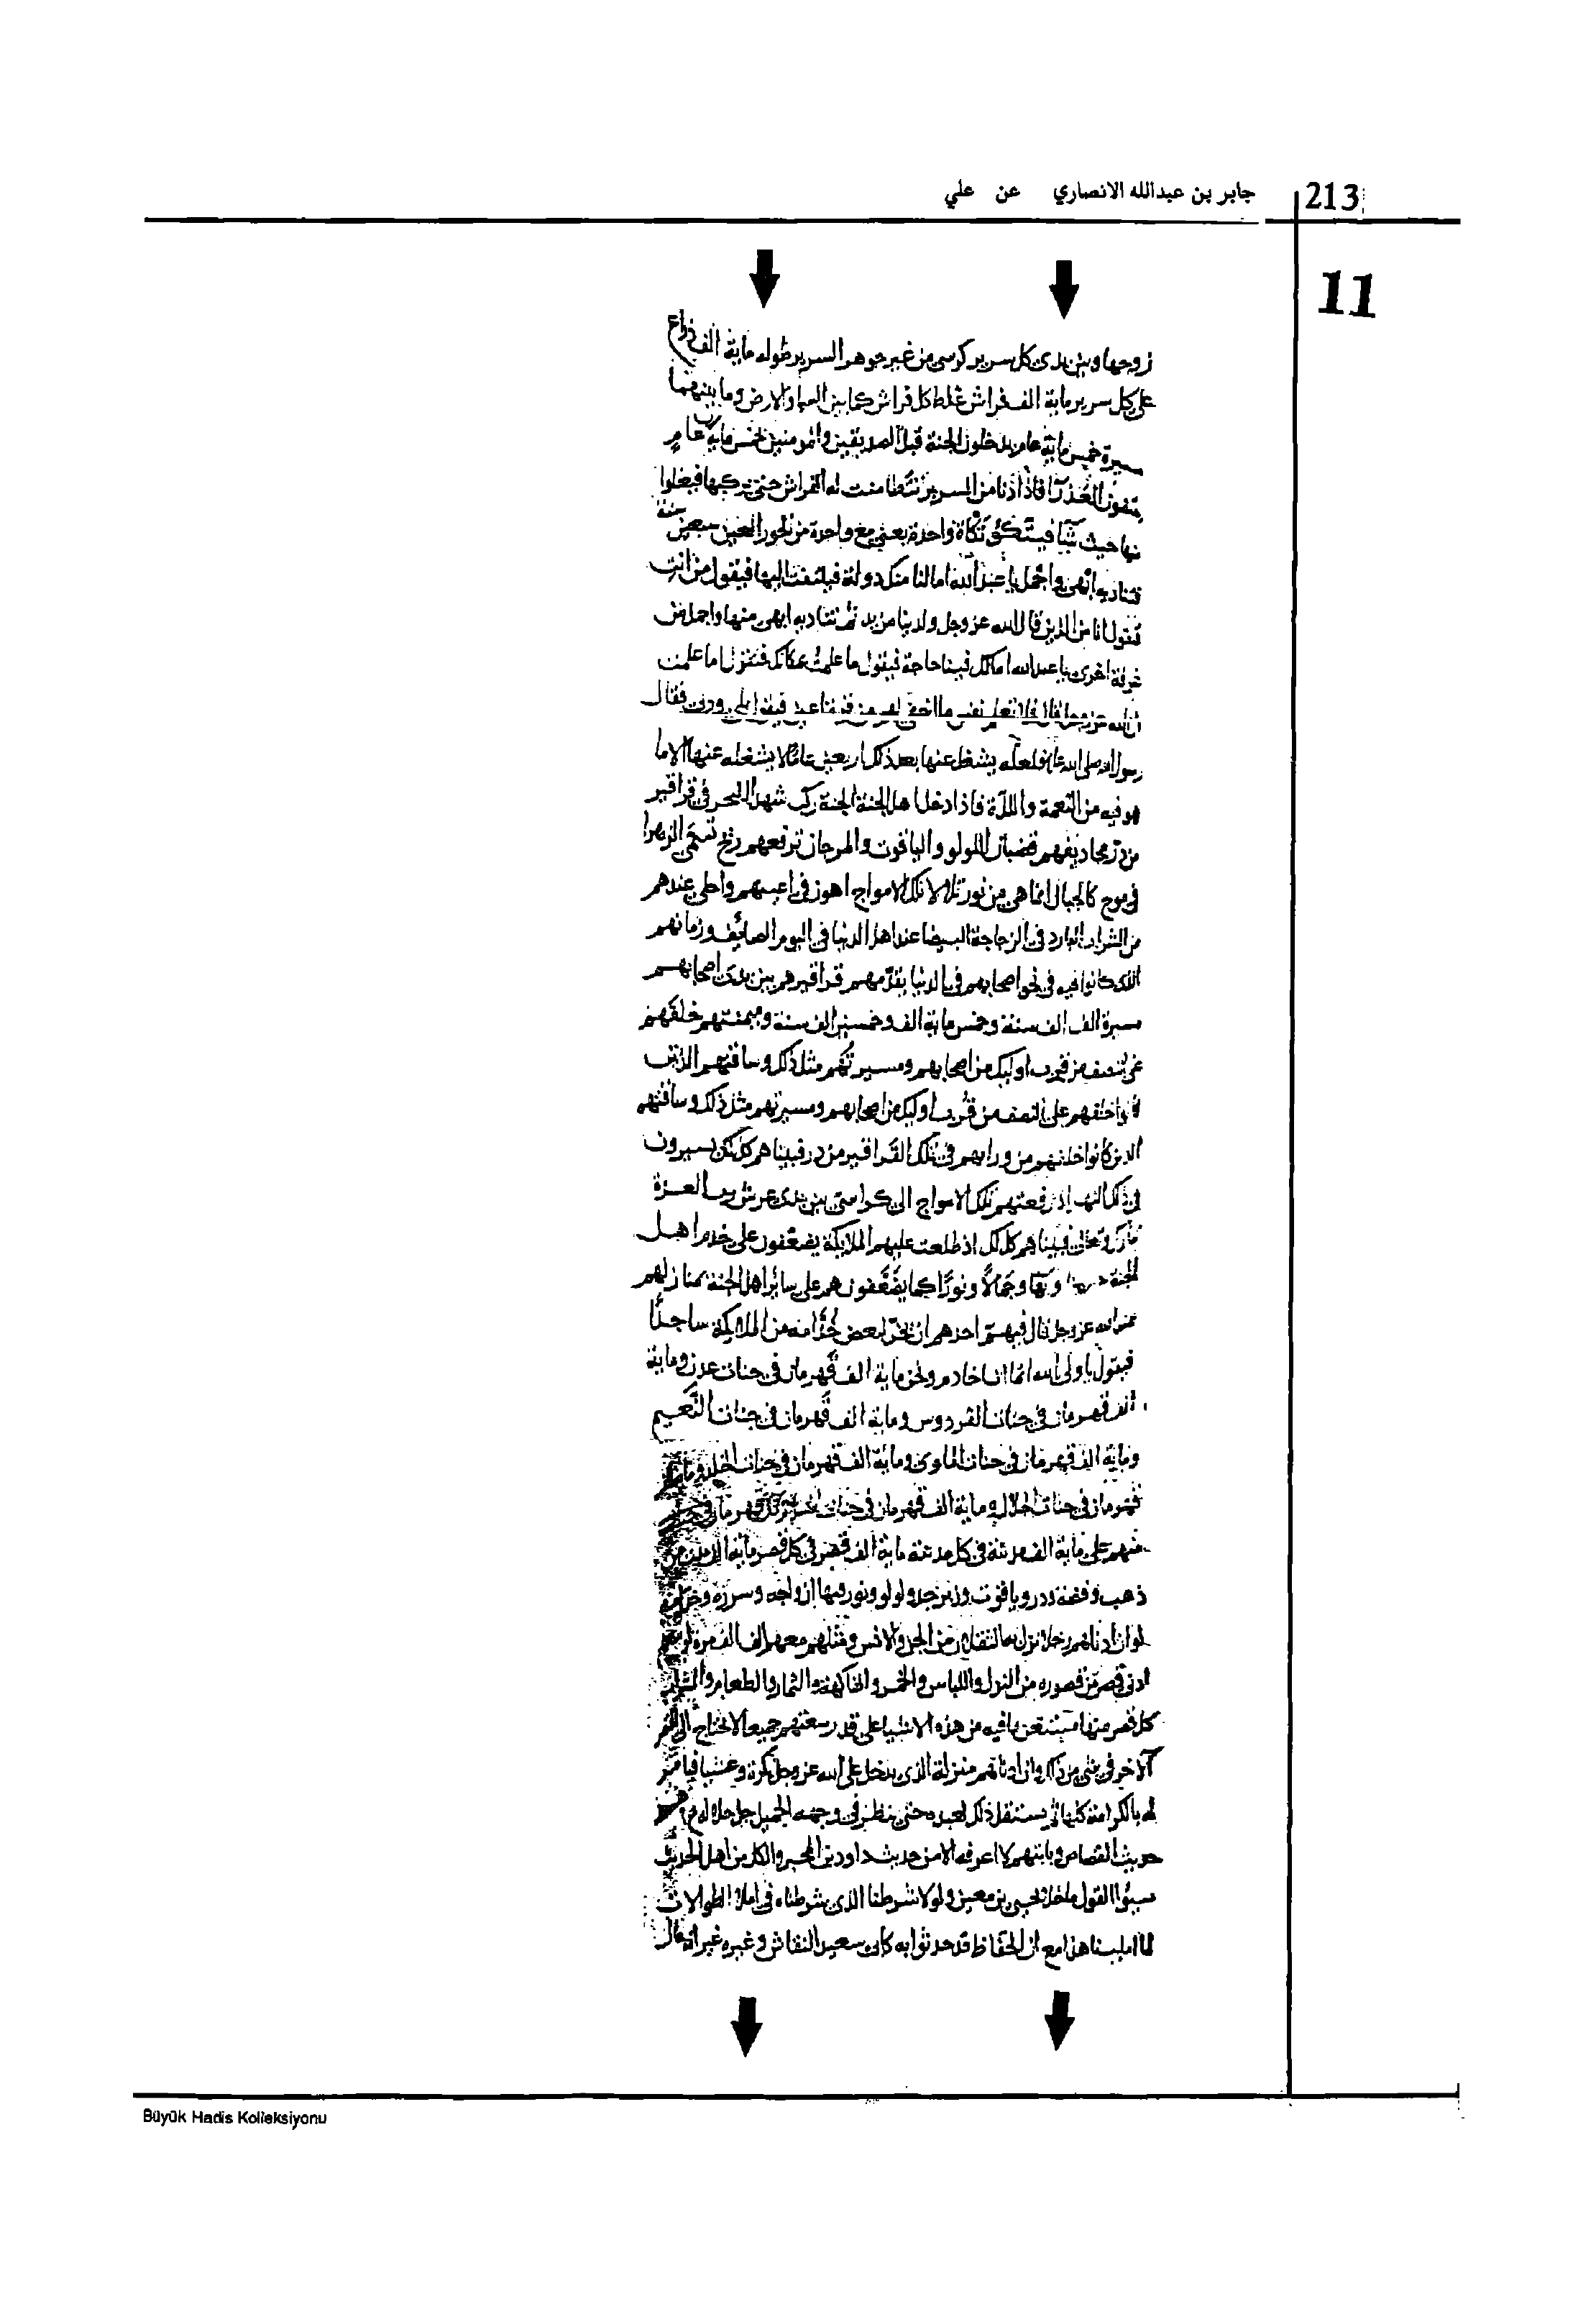 213
جابر بن عبدالله الانصاري عن علي
11
زوجها وبين يدى كل سرير كرسى من غير جوهر السرير طوله ماية الف ذراع
على كل سرير ماية الف فراش غلظ كل فراش كما بين السما والارض وما بينهما
مسيرة خمس ماية عام يدخلون الجنة قبل الصديقين والمومنين بخمس ماية عام
فاذا دنا من السرير تطامنت له الفراش حتى يركبها فيعلوا
منها حيث شا فيتكئ تكاة واحدة مع واحدة من الحور العين سبعين سنة
فتناديه ابهى واجمل يا عبد الله اما لنا منك دولة فيلتفت اليها فيقول من انت
فتقول انا من الذين قال الله عز وجل ولدينا مزيد ثم تناديه ابهى منها واجمل من
غرفة اخرى يا عبد الله اما لك فينا حاجة فيقول ما علمت بمكانك فتقول اما علمت
ان الله عز وجل قال فلا تعلم نفس ما اخفى لهم من قرة اعين فيقول بلى وربى فقال
رسول الله صلى الله عليه فلعله يشغل عنها بعد ذلك اربعين عاما لا يشغله عنها الا ما
هو فيه من النعمة واللذة فاذا دخل اهل الجنة الجنة ركب شهدا البحر فى قراقير
من در مجاديفهم قضبان اللولو والياقوت والمرجان ترفعهم ريح تسمى الزهرا
فى موج كالجبال انما هى من نور تلالا تلك الامواج اهون فى اعينهم واحلى عندهم
من الشراب البارد فى الزجاجة البيضا عند اهل الدنيا فى اليوم الصائف وزمانهم
الذى كانوا فيه فى نحو اصحابهم فى الدنيا يقدمهم قراقيرهم بين يدى اصحابهم
مسيرة الف الف سنة وخمس ماية الف وخمسين الف سنة وميمنتهم خلفهم
على النصف من قرب اوليك من اصحابهم ومسيرتهم مثل ذلك وساقتهم الذين
كانوا خلفهم على النصف من قرب اوليك من اصحابهم ومسيرتهم مثل ذلك وساقتهم
الذين كانوا خلفهم من ورايهم فى تلك القراقير من در فبينا هم كذلك يسيرون
فى ذلك النهر اذ رفعتهم تلك الامواج الى كراسى بين يدى عرش رب العزة
تبارك وتعالى فبينا هم كذلك اذ طلعت عليهم الملايكة يضعفون على خدم اهل
الجنة وبها وجمالا ونورا كما يضعفون هم على سائر اهل الجنة بمنازلهم
عند الله عز وجل قال فيهم احدهم ان يخر لبعض خدامه من الملايكة ساجدا
فيقول يا ولى الله انما انا خادم ونحن ماية الف قهرمان فى جنات عدن وماية
الف قهرمان فى جنات الفردوس وماية الف قهرمان فى جنات النعيم
وماية الف قهرمان فى جنات الماوى وماية الف قهرمان فى جنات الخلد
قهرمان فى جنات الجلال وماية الف قهرمان فى جنات
منهم على ماية الف مدينة فى كل مدينة ماية الف قصر فى كل قصر ماية الف
ذهب وفضة ودر وياقوت وزبرجد ولولو ونور فيها ازواجه وسرره وخدامه
لو ان ادناهم رجلا نزل به الثقلان من الجن والانس ومثلهم معهم الف الف مرة لوسعهم
ادنى قصر من قصوره من النزل واللباس والخمر والفاكهة والثمار والطعام والشراب
كل قصر منها مستغن بما فيه من هذه الاشيا على قدر سعتهم جميعا لا يحتاج الى القصر
الاخر فى شى من ذلك وان ادناهم منزلة الذى يدخل على الله عز وجل بكرة وعشيا فيامر
له بالكرامة كلها لم يستقل ذلك لعبده حتى ينظر فى وجهه الجميل جل جلاله
حديث القصاص لا اعرفه الا من حديث داود بن المحبر والكل من اهل الحديث
القول ما خلا يحيى بن معين ولولا شرطنا الذى شرطناه فى املا الطوالات
لما املينا هذا مع ان الحفاظ قد حدثوا به كابى سعيد النقاش وغيره غير انه قال
Büyük Hadis Kolleksiyonu